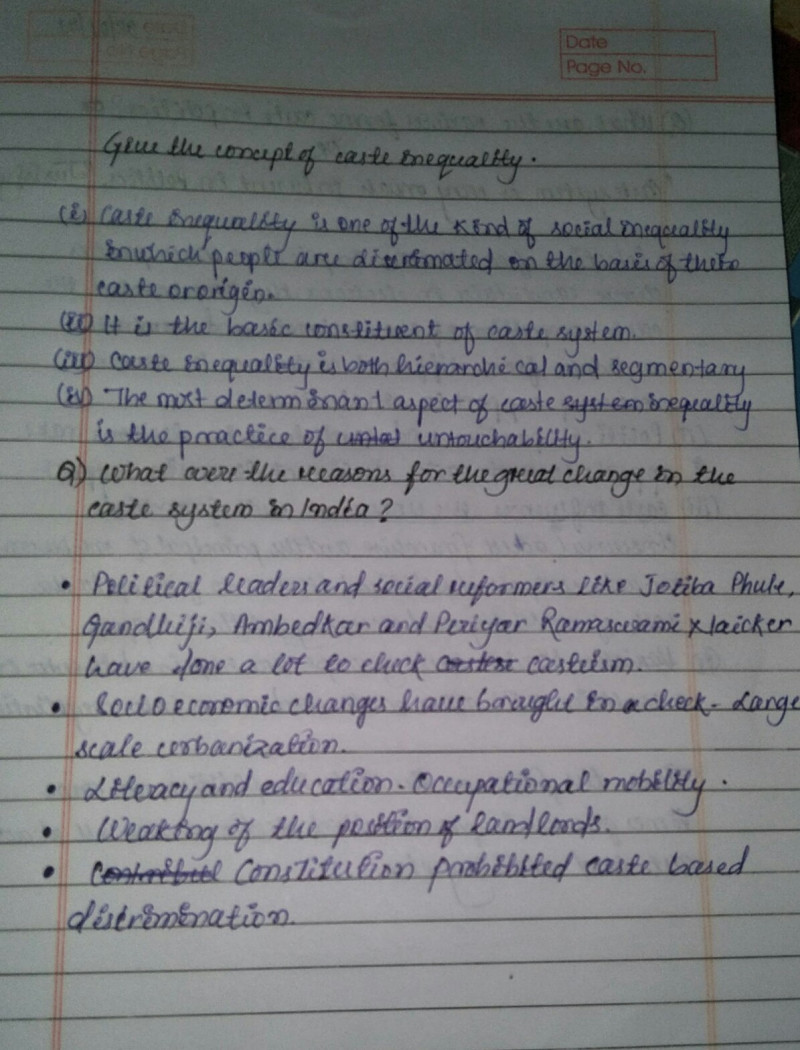 Date
Page No.
Give the concept of caste inequality.
(i) Caste inequality is one of the kind of social inequality
in which people are discrimated on the basis of their
caste or origin.
(ii) It is the basic constituent of caste system.
(iii) Caste inequality is both hierarchical and segmentary
(iv) The most determinant aspect of caste system inequality
is the practice of untouchability.
Q) What were the reasons for the great change in the
caste system in India?
• Political leaders and social reformers like Jotiba Phule,
Gandhiji, Ambedkar and Periyar Ramaswami Naicker
have done a lot to check casteism.
• Socio economic changes have brought in a check - Large
scale urbanization.
• Literacy and education. Occupational mobility.
• Weaking of the position of landlords.
• Constitution prohibited caste based
discrimination.